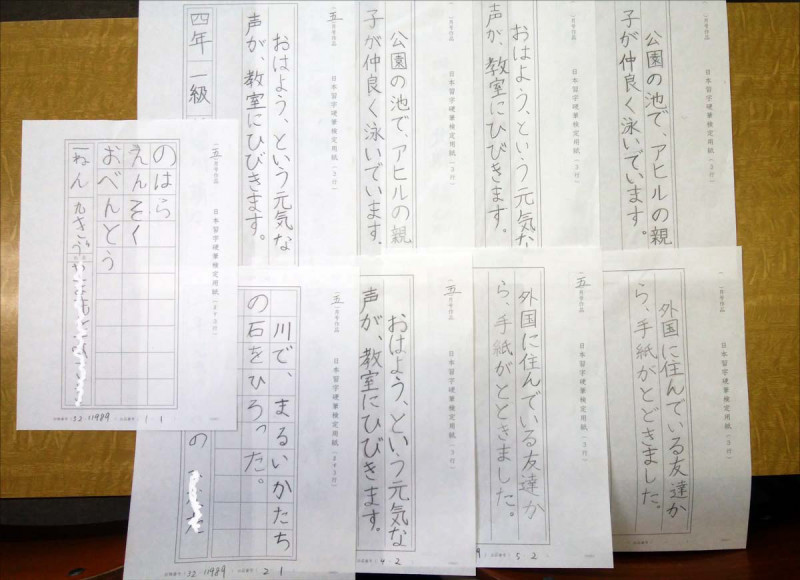 日本習字硬筆検定用紙（3行）
公園の池で、アヒルの親
子が仲良く泳いでいます。
月号作品
日本習字硬筆検定用紙（3行）
おはよう、という元気な
声が、教室にひびきます。
月号作品
日本習字硬筆検定用紙（3行）
公園の池で、アヒルの親
子が仲良く泳いでいます。
五月号作品
日本習字硬筆検定用紙（3行）
おはよう、という元気な
声が、教室にひびきます。
四年 一級
日本習字硬筆検定用紙（3行）
外国に住んでいる友達か
ら、手紙がとどきました。
五月号作品
日本習字硬筆検定用紙（3行）
外国に住んでいる友達か
ら、手紙がとどきました。
5 2
五月号作品
日本習字硬筆検定用紙（3行）
おはよう、という元気な
声が、教室にひびきます。
4 2
五月号作品
日本習字硬筆検定用紙（2字3行）
川で、まるいかたち
の石をひろった。
の
32 11989 2 1
五月号作品
日本習字硬筆検定用紙（2字3行）
のはら
えんそく
おべんとう
一ねん
32 11989 1 1